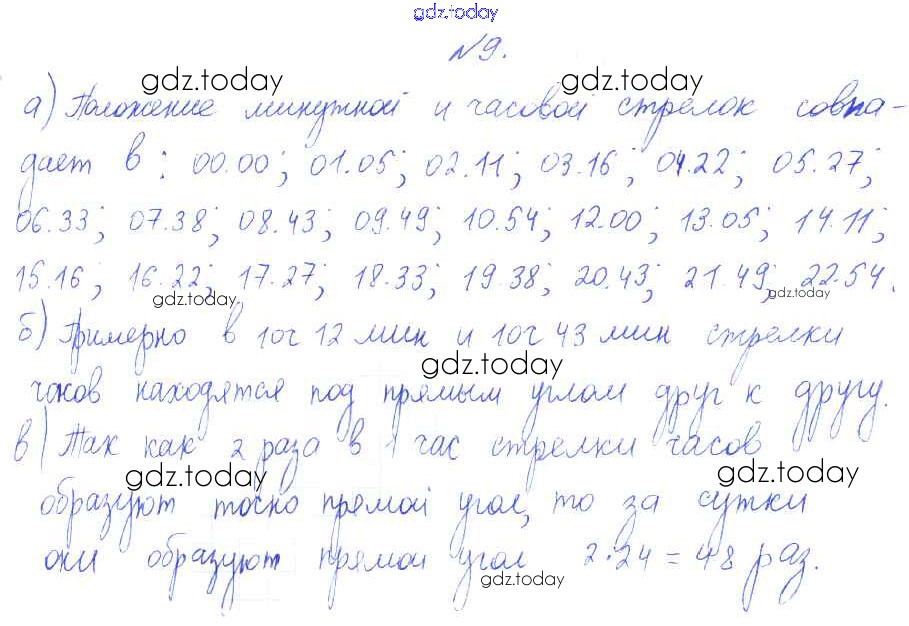 gdz.today
№9.
gdz.today gdz.today
а) Положение минутной и часовой стрелок совпа-
дает в: 00.00; 01.05; 02.11; 03.16; 04.22; 05.27;
06.33; 07.38; 08.43; 09.49; 10.54; 12.00; 13.05; 14.11;
15.16; 16.22; 17.27; 18.33; 19.38; 20.43; 21.49; 22.54.
gdz.today gdz.today
б) Примерно в 10ч 12 мин и 10ч 43 мин стрелки
gdz.today
часов находятся под прямым углом друг к другу.
в) Так как 2 раза в 1 час стрелки часов
gdz.today gdz.today
образуют тоско прямой угол, то за сутки
они образуют прямой угол 2·24 = 48 раз.
gdz.today